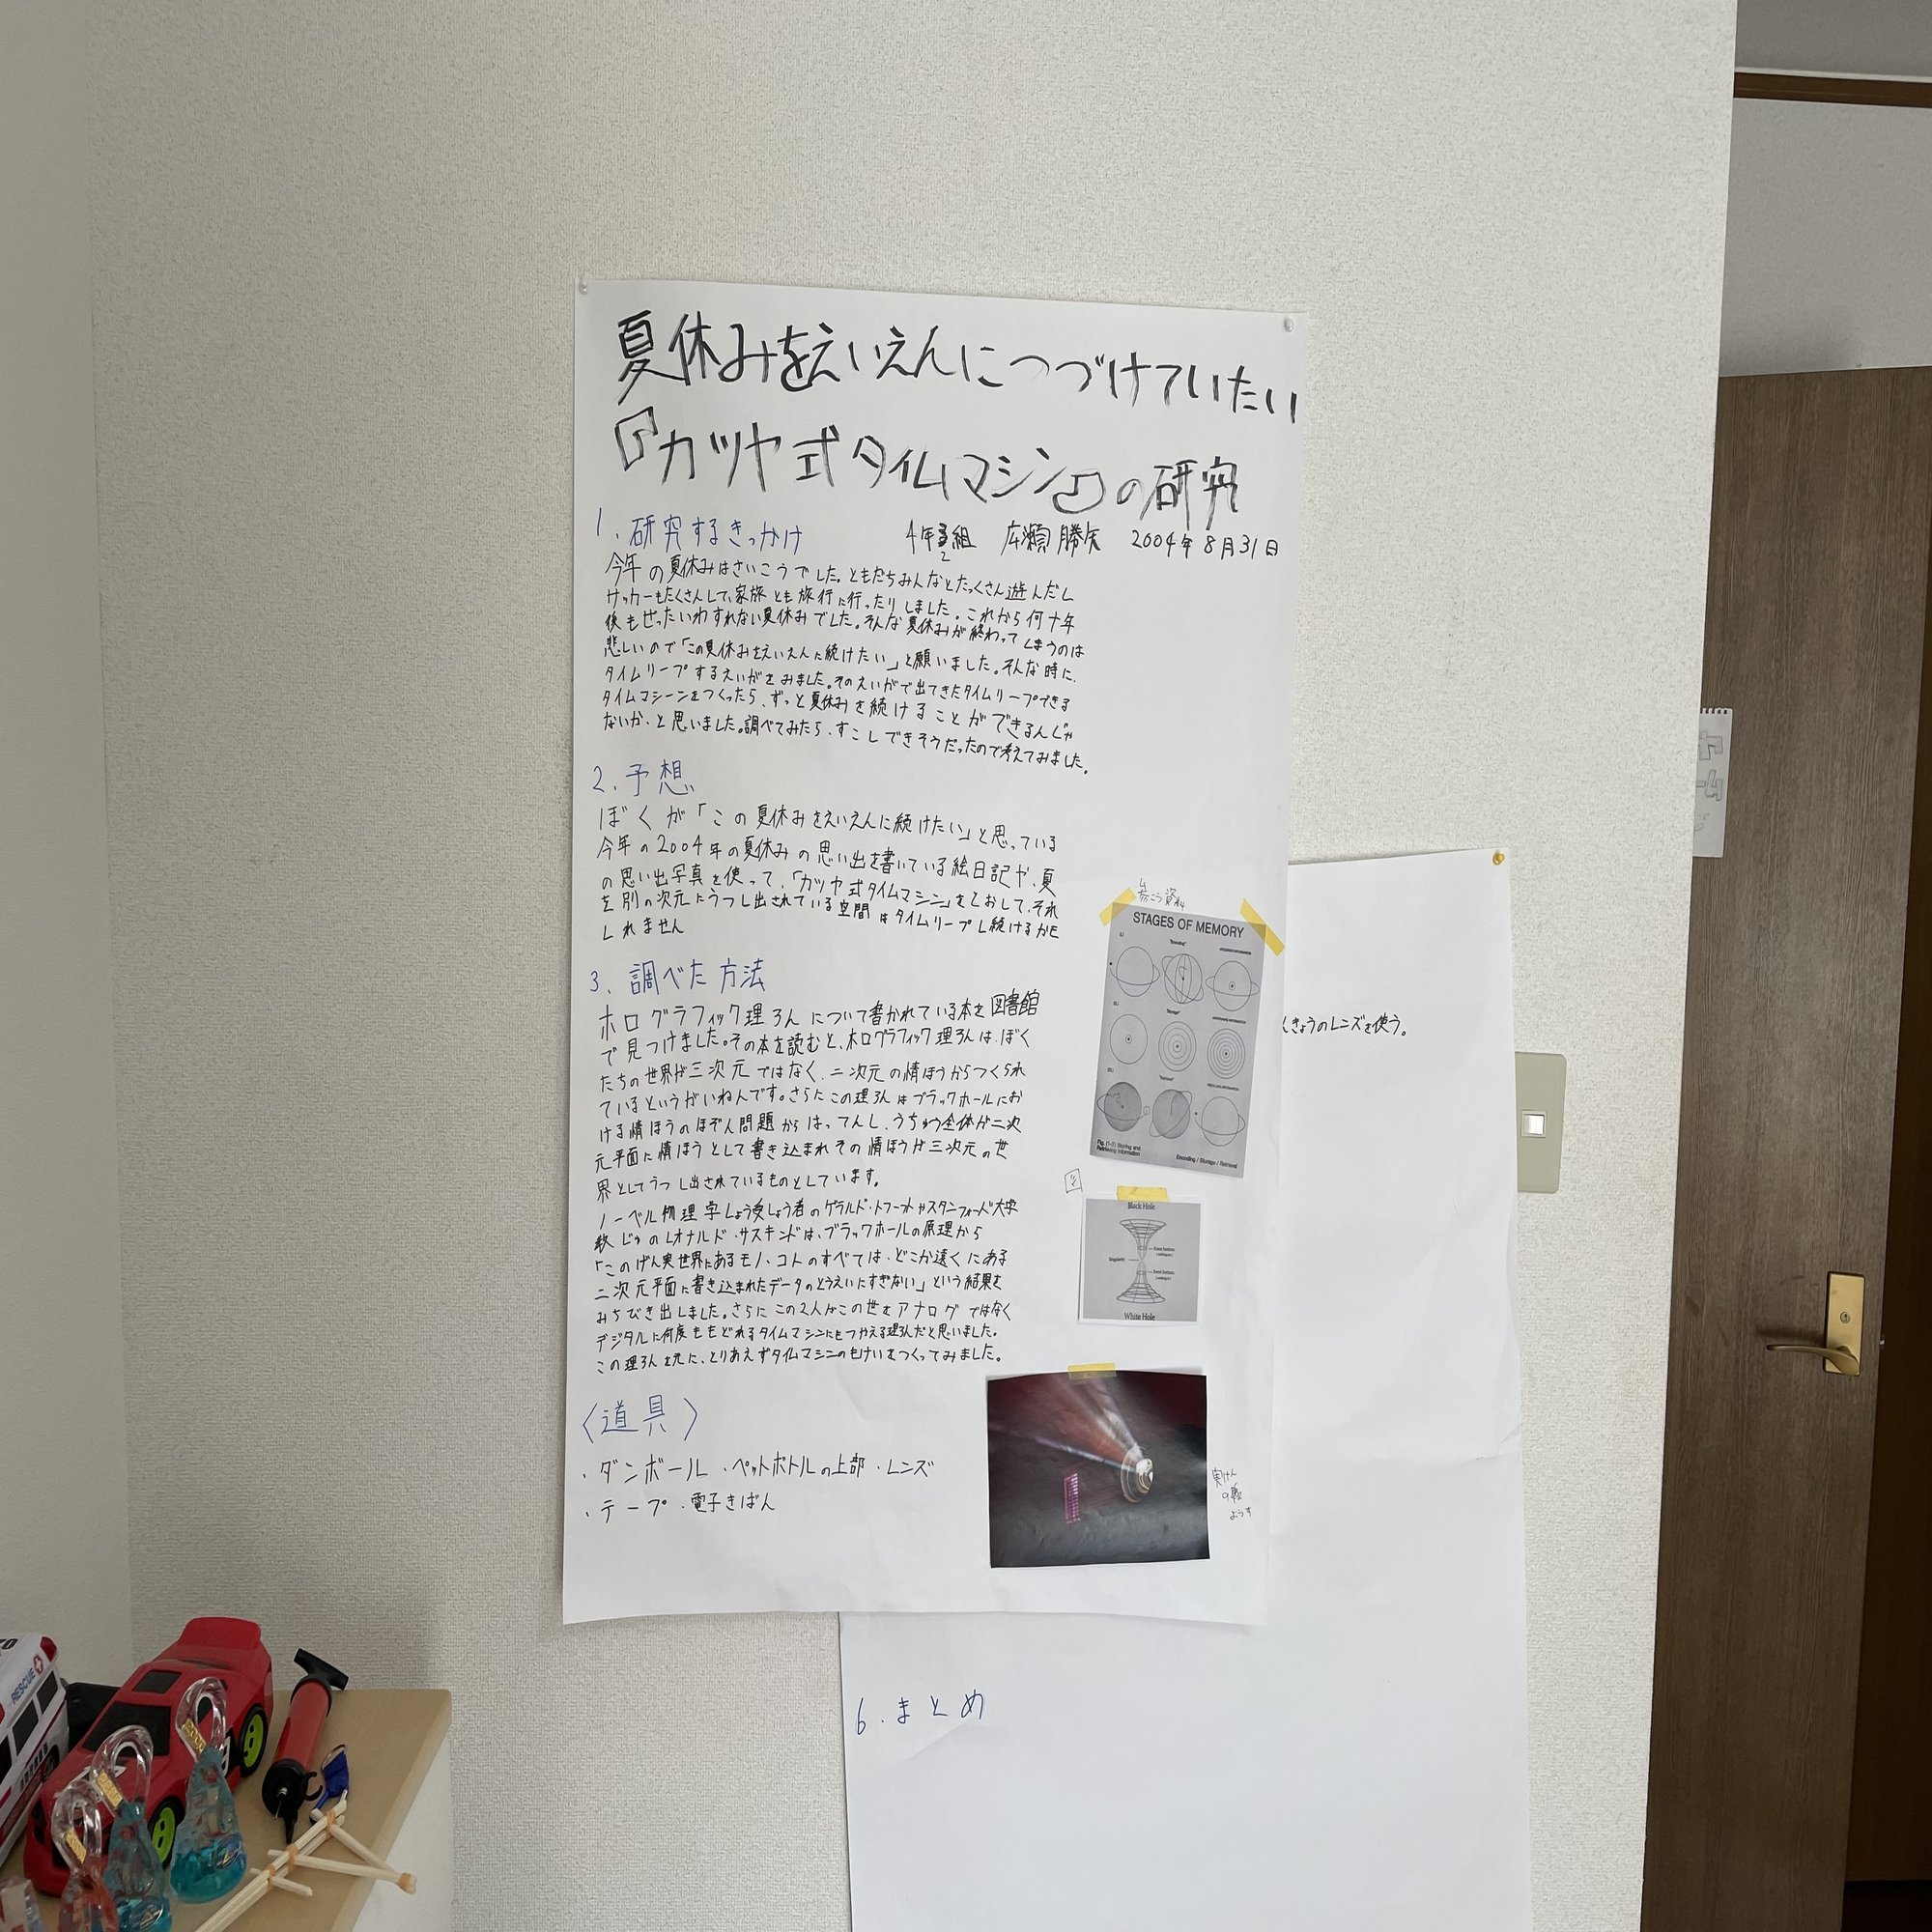 夏休みをえいえんにつづけていたい
『カツヤ式タイムマシン』の研究
1.研究するきっかけ
4年2組 広瀬勝矢 2004年8月31日
今年の夏休みはさいこうでした。ともだちみんなとたっくさん遊んだし
サッカーもたくさんして、家族とも旅行に行ったりしました。これから何十年
後もぜったいわすれない夏休みでした。そんな夏休みが終わってしまうのは
悲しいので「この夏休みをえいえんに続けたい」と願いました。そんな時に、
タイムリープするえいがをみました。そのえいがで出てきたタイムリープできる
タイムマシーンをつくったら、ずっと夏休みを続けることができるんじゃ
ないか、と思いました。調べてみたら、すこしできそうだったので考えてみました。
2.予想
ぼくが「この夏休みをえいえんに続けたい」と思っている
今年の2004年の夏休みの思い出を書いている絵日記や、夏
の思い出写真を使って、「カツヤ式タイムマシン」をとおして、それ
を別の次元にうつし出されている空間はタイムリープし続けるかも
しれません
3.調べた方法
ホログラフィック理ろんについて書かれている本を図書館
で見つけました。その本を読むと、ホログラフィック理ろんは、ぼく
たちの世界が三次元ではなく、二次元の情ほうからつくられ
ているというがいねんです。さらにこの理ろんはブラックホールにお
ける情ほうのほぞん問題からはってんし、うちゅう全体が二次
元平面に情ほうとして書き込まれその情ほうが三次元の世
界としてうつし出されているものとしています。
ノーベル物理学しょう受しょう者のゲラルド・トフーフトやスタンフォード大学
教じゅのレオナルド・サスキンドは、ブラックホールの原理から
「このげん実世界にあるモノ、コトのすべては、どこか遠くにある
二次元平面に書き込まれたデータのとうえいにすぎない」という結果を
みちびき出しました。さらにこの2人がこの世をアナログではなく
デジタルに何度ももどれるタイムマシンにもつかえる理ろんだと思いました。
この理ろんを元に、とりあえずタイムマシンのもけいをつくってみました。
〈道具〉
・ダンボール ・ペットボトルの上部 ・レンズ
・テープ ・電子きばん
参こう資料
STAGES OF MEMORY
"Encoding"
"Storage"
"Retrieval"
Fig. (1-7) Storing and
Retrieving Information
Encoding / Storage / Retrieval
Black Hole
Singularity
White Hole
実けん
の
ようす
んきょうのレンズを使う。
6.まとめ
RESCUE